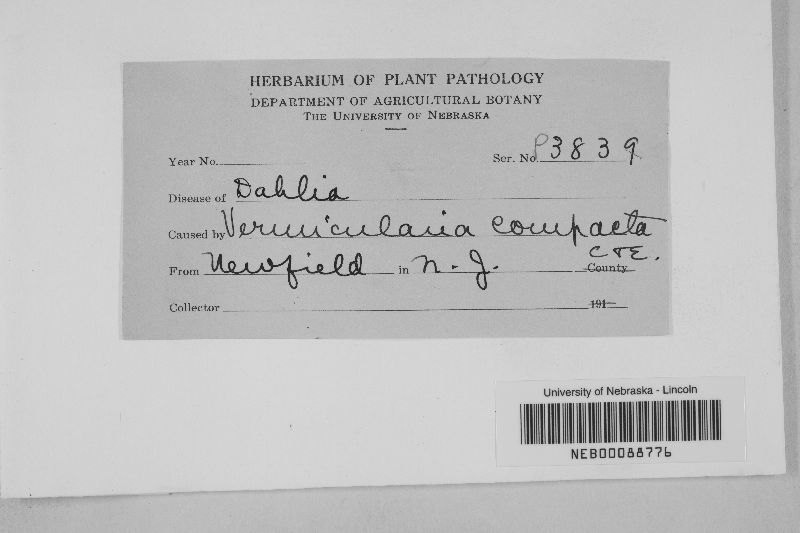 HERBARIUM OF PLANT PATHOLOGY
DEPARTMENT OF AGRICULTURAL BOTANY
THE UNIVERSITY OF NEBRASKA
Year No. Ser. No. P3839
Disease of Dahlia
Caused by Vermicularia compacta
C & E.
From Newfield in N. J. County
Collector 191
University of Nebraska - Lincoln
NEB00088776